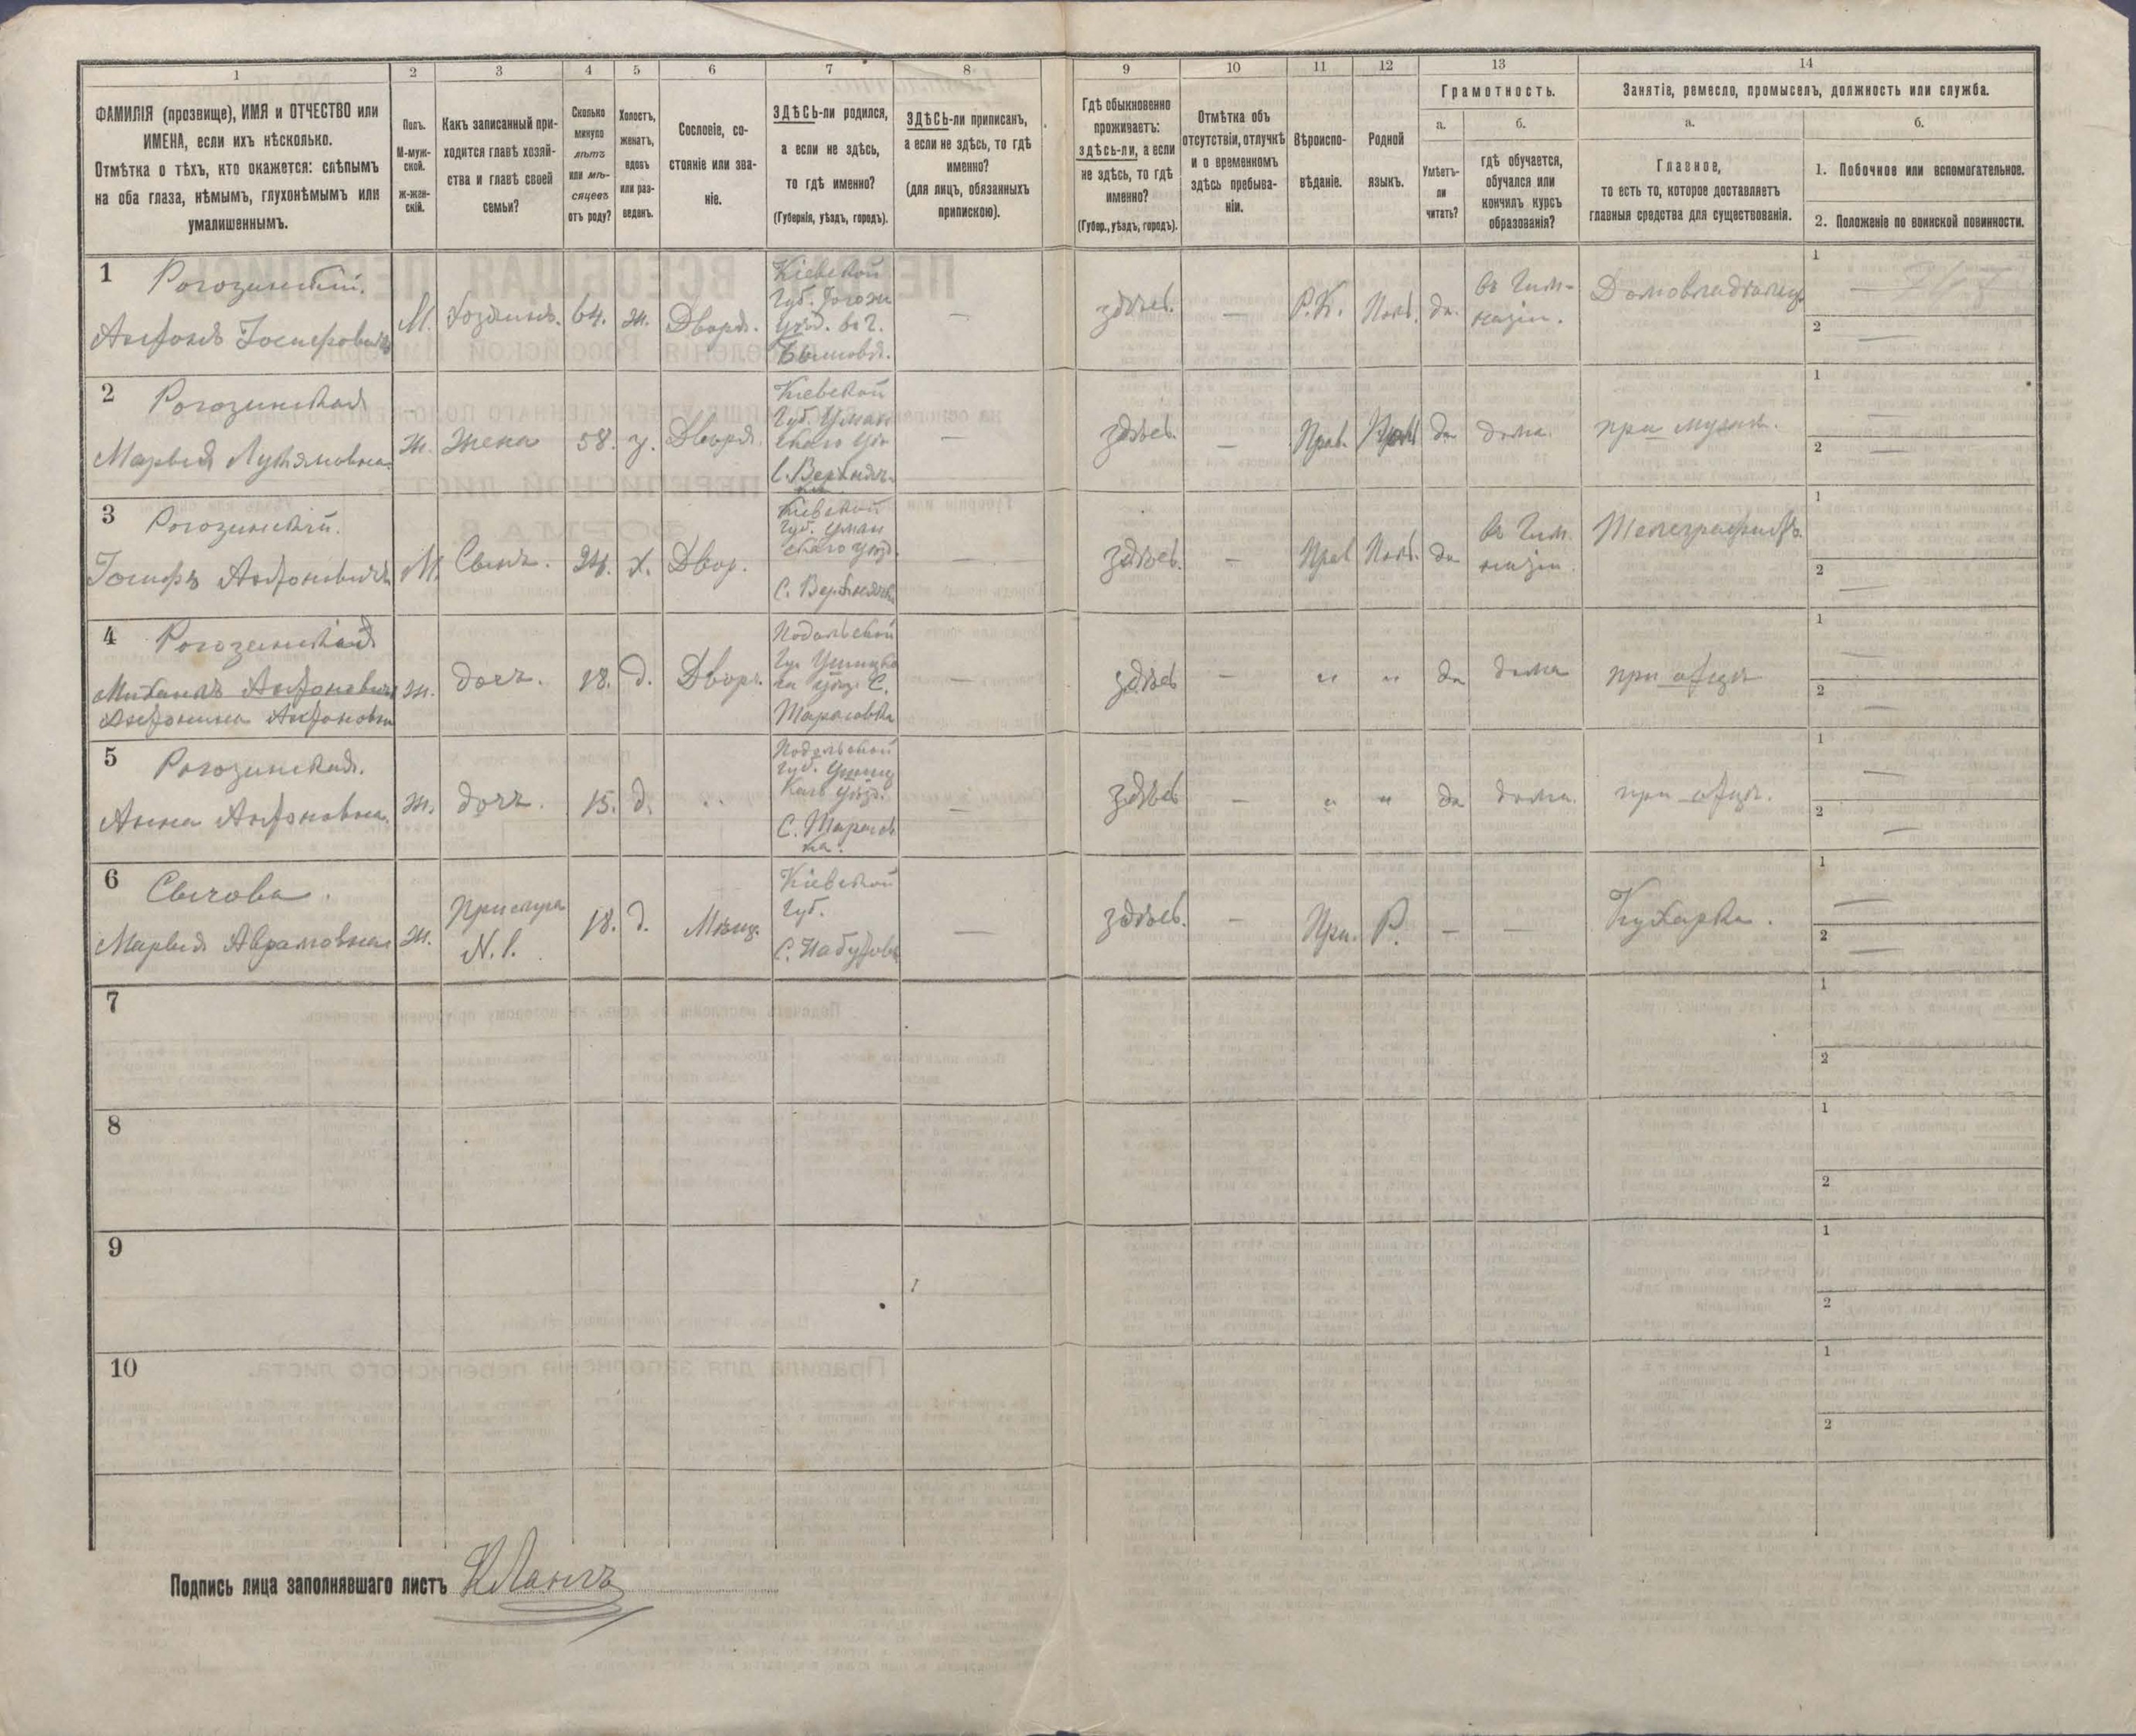 1
2
3
4
5
6
7
8
9
10
11
12
13
14
ФАМИЛІЯ (прозвище), ИМЯ и ОТЧЕСТВО или
ИМЕНА, если ихъ нѣсколько.
Отмѣтка о тѣхъ, кто окажется: слѣпымъ
на оба глаза, нѣмымъ, глухонѣмымъ или
умалишеннымъ.
Полъ.
М-муж-
ской.
ж-жен-
скій.
Какъ записанный при-
ходится главѣ хозяй-
ства и главѣ своей
семьи?
Сколько
минуло
лѣтъ
или мѣ-
сяцевъ
отъ роду?
Холостъ,
женатъ,
вдовъ
или раз-
веденъ.
Сословіе, со-
стояніе или зва-
ніе.
ЗДѢСЬ-ли родился,
а если не здѣсь,
то гдѣ именно?
(Губернія, уѣздъ, городъ).
ЗДѢСЬ-ли приписанъ,
а если не здѣсь, то гдѣ
именно?
(для лицъ, обязанныхъ
припискою).
Гдѣ обыкновенно
проживаетъ:
здѣсь-ли, а если
не здѣсь, то гдѣ
именно?
(Губер., уѣздъ, городъ).
Отмѣтка объ
отсутствіи, отлучкѣ
и о временномъ
здѣсь пребыва-
ніи.
Вѣроиспо-
вѣданіе.
Родной
языкъ.
Грамотность.
а.
Умѣетъ-
ли
читать?
б.
гдѣ обучается,
обучался или
кончилъ курсъ
образованія?
Занятіе, ремесло, промыселъ, должность или служба.
а.
Главное,
то есть то, которое доставляетъ
главныя средства для существованія.
б.
1. Побочное или вспомогательное.
2. Положеніе по воинской повинности.
1 Рогозинскій.
Антонъ Іосифовичъ
М.
Хозяинъ.
64.
ж.
Дворя.
Кіевской
Губ.
уѣзд.
—
здѣсь.
—
Р.К.
Пол.
да.
въ Гим-
назіи.
Домовладѣлецъ
1
—
2
—
2 Рогозинская
Марья Лукьяновна.
ж.
Жена
58.
з.
Дворя.
Кіевской
Губ. Уман
скаго уѣз
С. Верхняч-
ка
—
здѣсь.
—
Прав.
да
дома.
при мужѣ.
1
—
2
—
3 Рогозинскій.
Іосифъ Антоновичъ
М.
Сынъ.
24.
х.
Двор.
Кіевской
Губ. Уман
скаго уѣзд.
С. Верхнячка
—
здѣсь.
—
Прав
Пол.
да
въ Гим.
назіи.
Телеграфистъ.
1
2
—
4 Рогозинская
Михаилъ Антоновичъ
Антонина Антоновна
ж.
дочъ.
18.
д.
Двор.
Подольской
Гуг Ушицка
го уѣзд С.
Тарасовка
—
здѣсь
—
"
"
да
дома
при отцѣ
1
—
2
—
5 Рогозинская.
Анна Антоновна.
ж.
дочъ.
15.
д.
"
Подольской
Губ. Ушиц
каго уѣзд.
С. Тарасов
ка.
—
здѣсь
—
"
"
да
дома.
при отцѣ.
1
—
2
—
6 Сычова.
Марья Аврамовна
ж.
Прислуга
N. 1.
18.
д.
Мѣщ.
Кіевской
Губ.
С. Набутовъ
—
здѣсь.
—
Пра.
Р.
—
—
Кухарка.
1
—
2
—
7
1
2
8
1
2
9
1
2
10
1
2
Подпись лица заполнявшаго листъ